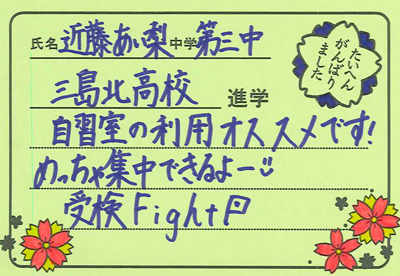 氏名 近藤あい梨 中学 第三中
たいへん
がんばり
ました
三島北高校 進学
自習室の利用オススメです!
めっちゃ集中できるよー
受検Fight